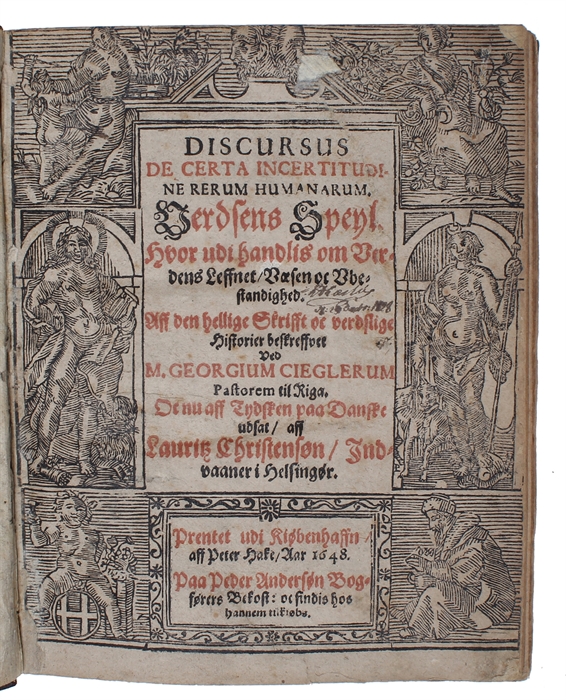 DISCURSUS
DE CERTA INCERTITUDI-
NE RERUM HUMANARUM.
Verdsens Speyl.
Hvor udi handlis om Ver-
dens Leffnet/ Væsen oc Vbe-
standighed.
Aff den hellige Skrifft oc verdslige
Historier beskreffvet
Ved
M. GEORGIUM CIEGLERUM
Pastorem til Riga.
Oc nu aff Tydsken paa Danske
udsat/ aff
Lauritz Christensøn/ Ind-
vaaner i Helsingør.
Prentet udi Kiøbenhaffn/
aff Peter Hake/ Aar 1648.
Paa Peder Andersøn Bog-
førers Bekost: oc findis hos
hannem tilkiøbs.